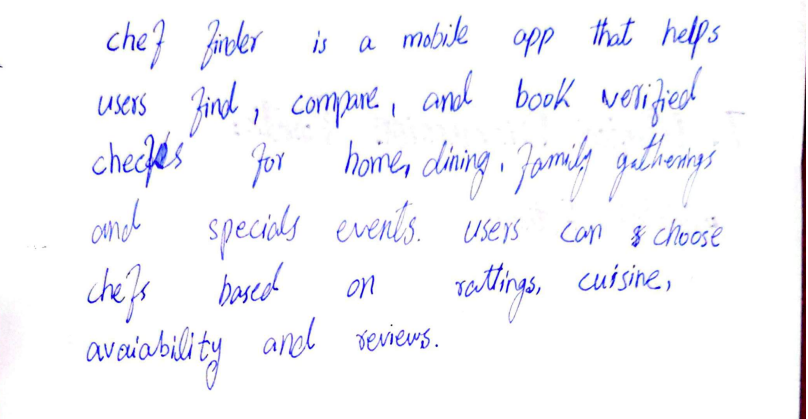 chef finder is a mobile app that helps
users find, compare, and book verified
checfs for home, dining, family gatherings
and specials events. users can choose
chefs based on rattings, cuisine,
avaiability and reviews.